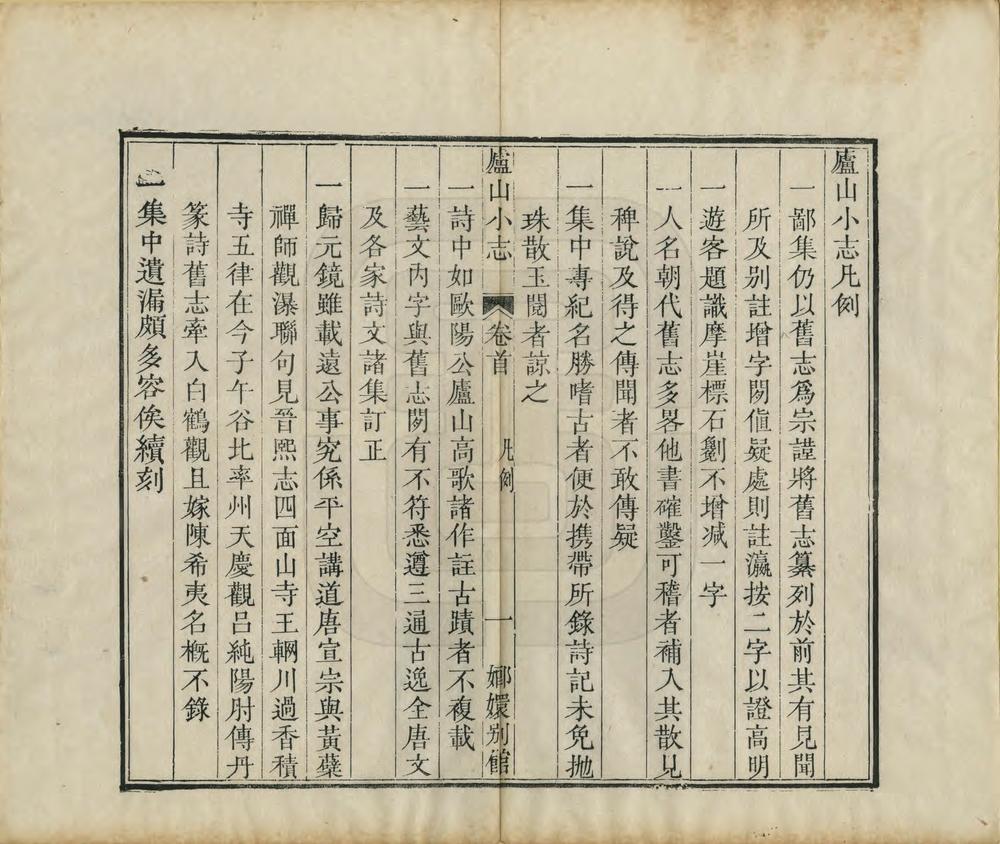 廬山小志凡例
一鄙集仍以舊志爲宗謹將舊志纂列於前其有見聞
所及别註增字閼値疑處則註瀛按二字以證高明
一遊客題識摩崖標石劖不增减一字
一人名朝代舊志多畧他書確鑿可稽者補入其散見
稗說及得之傳聞者不敢傳疑
一集中專紀名勝嗜古者便於携帶所錄詩記未免抛
珠散玉閱者諒之
廬山小志 卷首 凡例 一 嫏嬛别館
一詩中如歐陽公廬山高歌諸作註古蹟者不複載
一藝文内字與舊志閼有不符悉遵三通古逸全唐文
及各家詩文諸集訂正
一歸元鏡雖載遠公事究係平空講道唐宣宗與黃蘗
禪師觀瀑聯句見晉熙志四面山寺王輞川過香積
寺五律在今子午谷比率州天慶觀呂純陽肘傳丹
篆詩舊志牽入白鶴觀且嫁陳希夷名槪不錄
一集中遺漏頗多容俟續刻